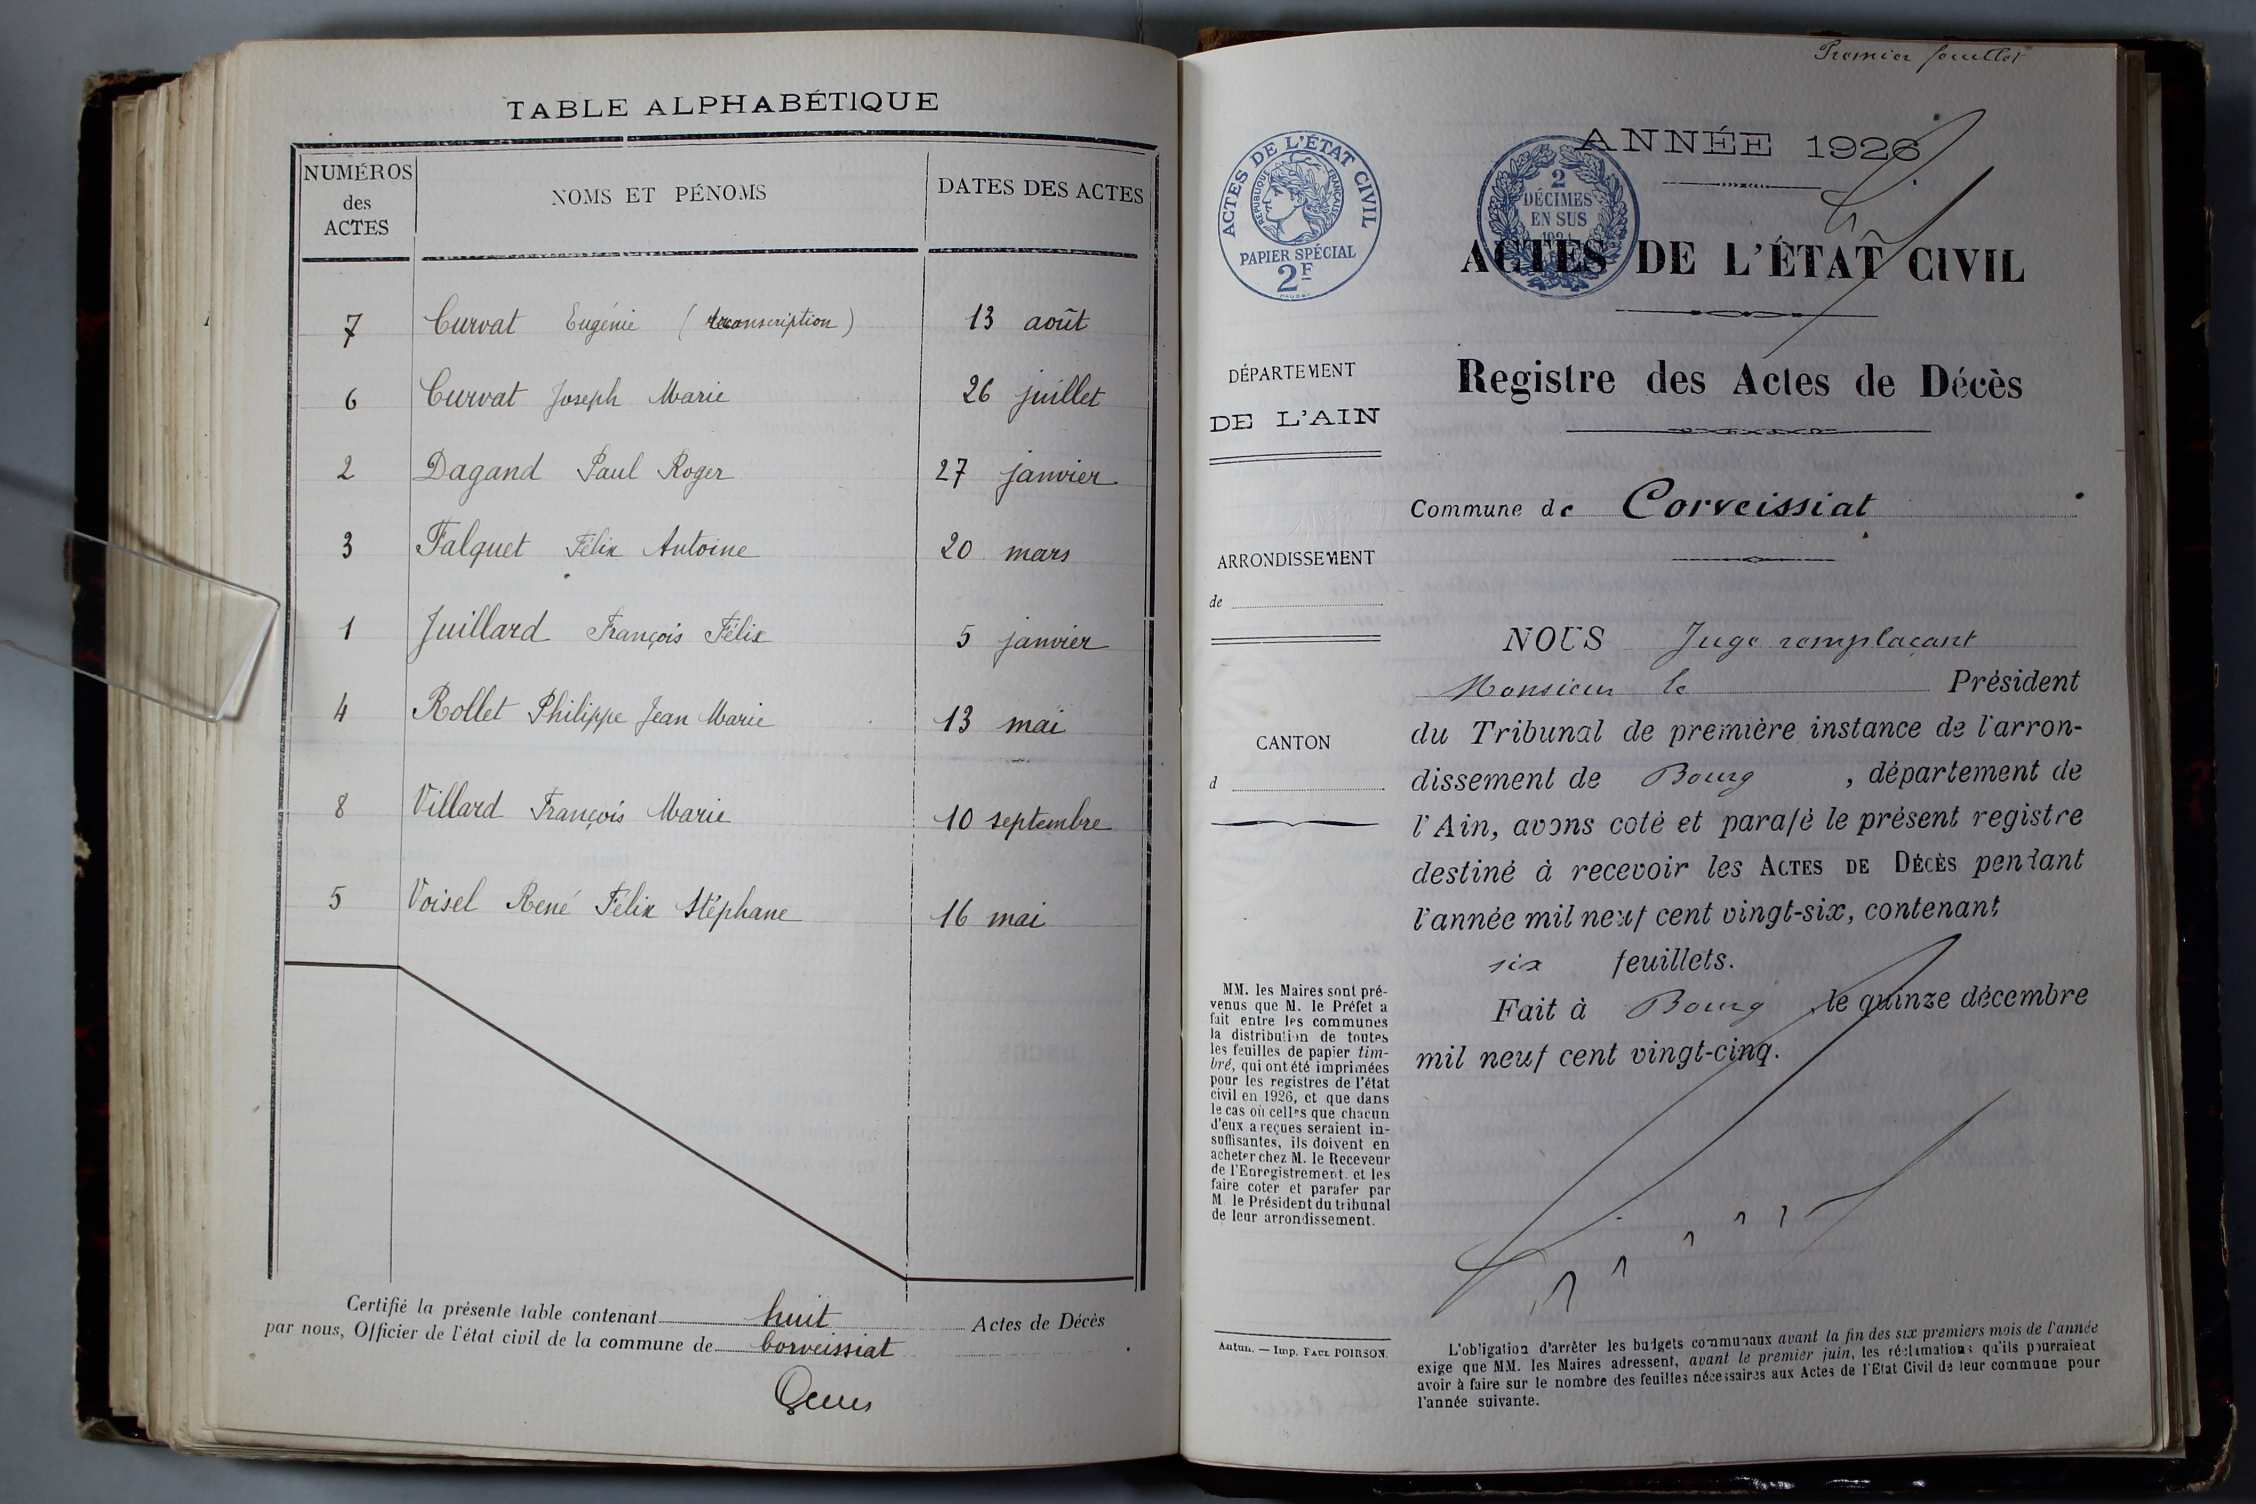 TABLE ALPHABÉTIQUE
NUMÉROS
des
ACTES
NOMS ET PÉNOMS
DATES DES ACTES
7 Curvat Eugénie (transcription) 13 août
6 Curvat Joseph Marie 26 juillet
2 Dagand Paul Roger 27 janvier
3 Falquet Félix Antoine 20 mars
1 Juillard François Félix 5 janvier
4 Rollet Philippe Jean Marie 13 mai
8 Villard François Marie 10 septembre
5 Voisel René Félix Stéphane 16 mai
Certifié la présente table contenant huit Actes de Décès
par nous, Officier de l'état civil de la commune de Corveissiat
Premier feuillet
ACTES DE L'ÉTAT CIVIL
RÉPUBLIQUE FRANÇAISE
PAPIER SPÉCIAL
2F
2
DÉCIMES
EN SUS
ANNÉE 1926
ACTES DE L'ÉTAT CIVIL
Registre des Actes de Décès
DÉPARTEMENT
DE L'AIN
Commune de Corveissiat
ARRONDISSEMENT
de
CANTON
d
NOUS Juge remplaçant
Monsieur le Président
du Tribunal de première instance de l'arron-
dissement de Bourg, département de
l'Ain, avons coté et parafé le présent registre
destiné à recevoir les ACTES DE DÉCÈS pendant
l'année mil neuf cent vingt-six, contenant
six feuillets.
Fait à Bourg le quinze décembre
mil neuf cent vingt-cinq.
MM. les Maires sont pré-
venus que M. le Préfet a
fait entre les communes
la distribution de toutes
les feuilles de papier tim-
bré, qui ont été imprimées
pour les registres de l'état
civil en 1926, et que dans
le cas où celles que chacun
d'eux a reçues seraient in-
suffisantes, ils doivent en
acheter chez M. le Receveur
de l'Enregistrement. et les
faire coter et parafer par
M. le Président du tribunal
de leur arrondissement.
Autun. — Imp. PAUL POIRSON.
L'obligation d'arrêter les budgets communaux avant la fin des six premiers mois de l'année
exige que MM. les Maires adressent, avant le premier juin, les réclamations qu'ils pourraient
avoir à faire sur le nombre des feuilles nécessaires aux Actes de l'Etat Civil de leur commune pour
l'année suivante.